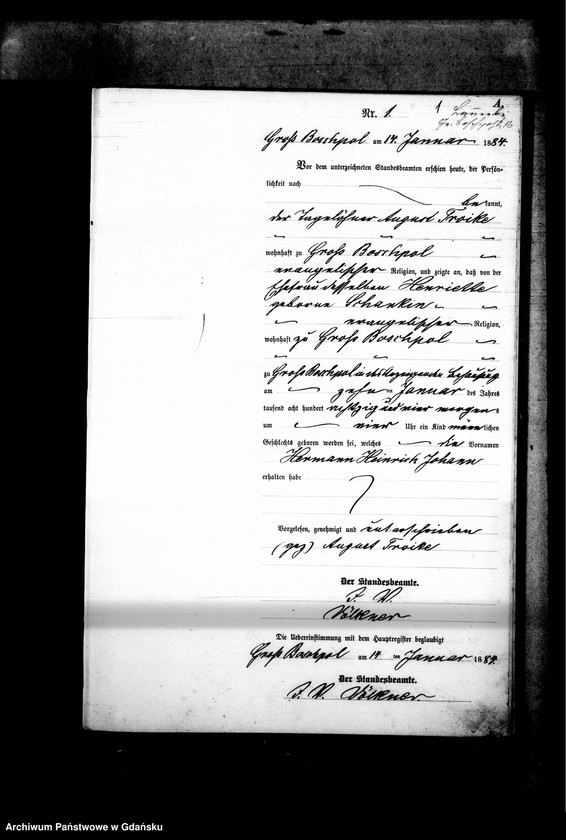 1 A.
Nr. 1.
Groß Boschpol am 14. Januar 1884.
Vor dem unterzeichneten Standesbeamten erschien heute, der Persön-
lichkeit nach
bekannt,
der Tagelöhner August Troike
wohnhaft zu Groß Boschpol
evangelischer Religion, und zeigte an, daß von der
Ehefrau desselben Henriette
geborne
evangelischer Religion,
wohnhaft zu Groß Boschpol
zu Groß Boschpol in des Anzeigenden Behausung
am zehn Januar des Jahres
tausend acht hundert achtzig und vier morgens
um vier Uhr ein Kind männlichen
Geschlechts geboren worden sei, welches die Vornamen
Hermann Heinrich Johann
erhalten habe
Vorgelesen, genehmigt und unterschrieben
(gez) August Troike
Der Standesbeamte.
J. V.
Völkner
Die Uebereinstimmung mit dem Hauptregister beglaubigt
Groß Boschpol am 14 ten Januar 1884.
Der Standesbeamte.
J. V. Völkner.
Archiwum Państwowe w Gdańsku